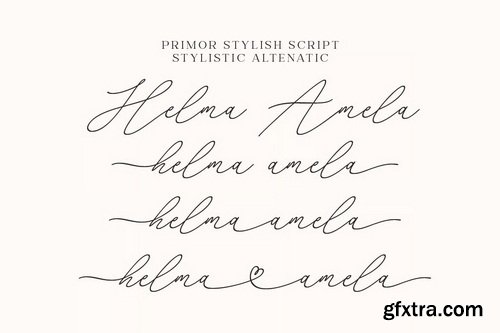 PRIMOR STYLISH SCRIPT
STYLISTIC ALTENATIC
Helma Amela
helma amela
helma amela
helma amela
gfxtra.com